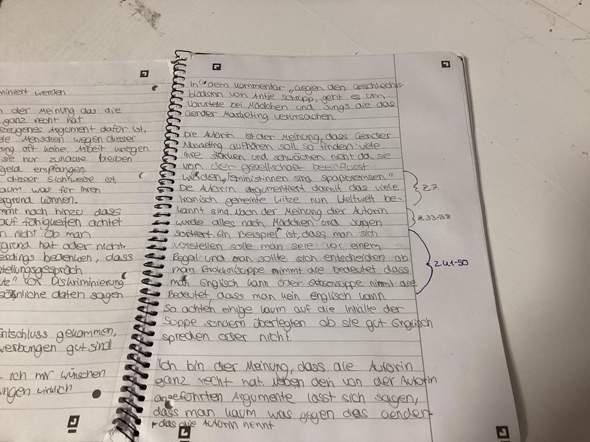 miniert werden
der Meinung das die
ganz recht hat
Argument dafür ist,
Menschen wegen dieser
oft keine Arbeit kriegen
sie nur zuhause bleiben
geld empfangen
dieser Sichtweise ist
kaum was für ihren
ergrund können.
nicht nach hinzu dass
auf fähigkeiten achtet
nicht ob man
grund hat oder nicht.
erdings bedenken, dass
stellungsgespräch
vor Diskriminierung
persönliche daten sagen
Entschluss gekommen,
werbungen gut sind
ich mir wünschen
ungen wirklich
In dem Kommentar „Gegen den Geschlechts-
blödsinn von Antje Schrupp, geht es um
Vorurteile bei Mädchen und Jungs die das
Gender Marketing verursachen.
Die Autorin ist der Meinung, dass Gender
Marketing aufhören soll so finden viele
ihre stärken und schwächen nicht da sie
von der gesellschaft beeinflusst
werden „Feministinnen sind Spaßbremsen"
Die Autorin argumentiert damit das viele
Ironisch gemeinte Witze nun Weltweit be-
kannt sind. Nach der Meinung der Autorin
werde alles nach Mädchen und Jungen
sortiert. Ein Beispiel ist, dass man sich
vorstellen solle man sehe vor einem
Regal und man sollte sich entscheiden ob
man Brokkolisuppe nimmt die bedeutet dass
man Englisch kann oder nimmt die
Bedeutet dass man kein englisch kann
So achten einige kaum auf die Inhalte der
Suppe sondern überlegten ob sie gut Englisch
sprechen oder nicht.
Ich bin der Meinung, dass die Autorin
ganz recht hat. den von der Autorin
angeführten Argumente lasst sich sagen,
dass man kaum was gegen das Gender-
das die Autorin nennt
Z.7
Z.33-38
Z.41-50